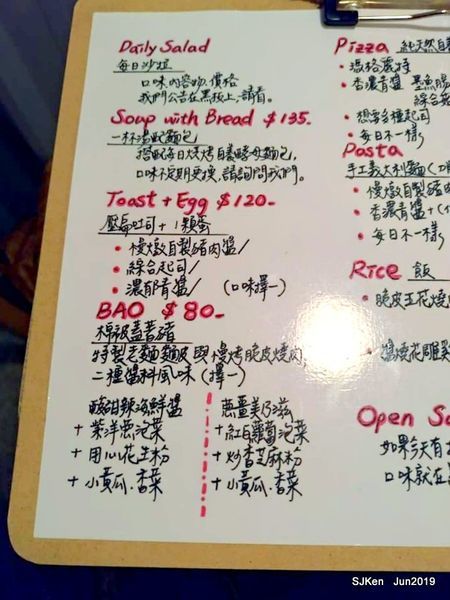 Daily Salad
每日沙拉
口味內容物.價格
我們公告在黑板上,請看。
Soup with Bread $135.
一杯湯配麵包
搭配每日烘烤自養酵母麵包,
口味不定期更換,請詢問我們。
Toast + Egg $120-
壓扁吐司 + 1顆蛋
• 慢燉自製豬肉醬/
• 綜合起司/
• 濃郁青醬/ (口味擇一)
BAO $80-
棉被蓋著豬
特製老麵麵皮與慢烤脆皮燒肉,
二種醬料風味(擇一)
酸甜辣海鮮醬
+ 紫洋蔥泡菜
+ 用心花生粉
+ 小黃瓜.香菜
蔥薑美乃滋
+ 紅白蘿蔔泡菜
+ 炒香芝麻粉
+ 小黃瓜.香菜
Pizza 純天然自
•
• 香濃青醬
• 想
• 每日不一樣
Pasta
手工義大利麵(口
• 慢燉自製豬肉
• 香濃青醬+(
• 每日不一樣
Rice 飯
• 脆皮五花燒
Open Sa
如果今天有
口味就在
SJKen Jun2019